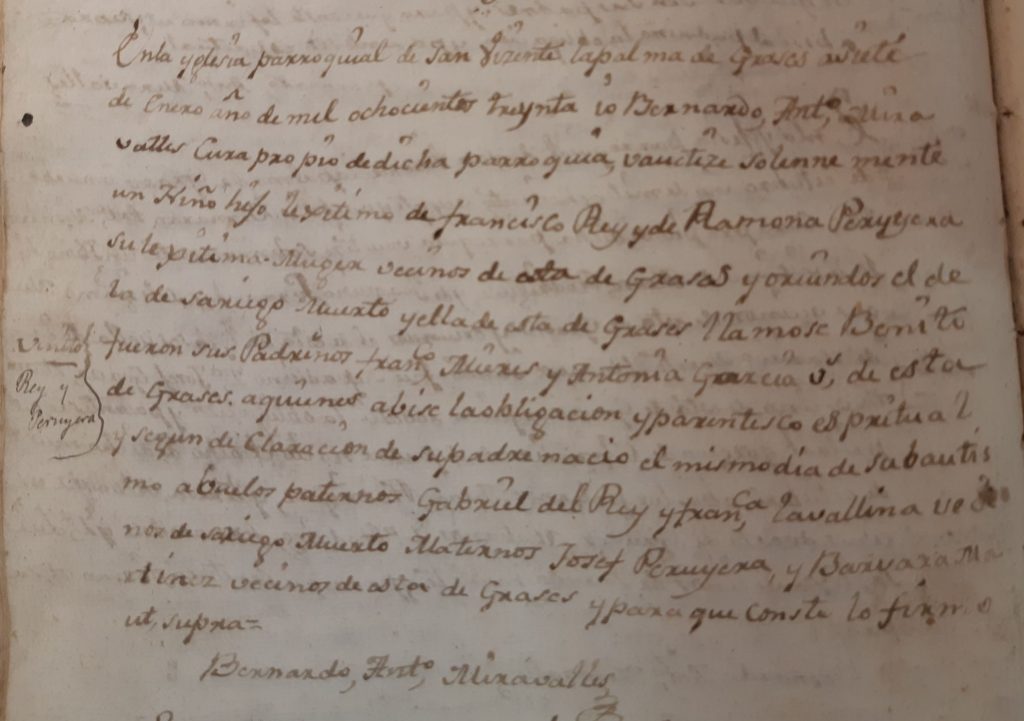 En la yglesia parroquial de San Vizente la palma de Grases a siete
de Enero año de mil ochocientos treynta io Bernardo, Antº, Mira
valles Cura propio de dicha parroquia, vautize solenne mente
un Niño hijo lexitimo de francisco Rey y de Ramona Peruyera
su lexitima Muger vecinos de esta de Grases y oriundos el de
la de sariego Muerto y ella de esta de Grases llamose Benito
fueron sus Padrinos franº Mieres y Antonia Garcia vs, de esta
de Grases. a quienes abise la obligacion y parentesco espritual
y segun de Claracion de su padre nacio el mismo dia de su bautis
mo abuelos paternos Gabriel del Rey y franca, lavallina veci
nos de sariego Muerto Maternos Josef Peruyera, y Barvara Ma
rtinez vecinos de esta de Grases y para que conste lo firmo
ut, supra=
Bernardo, Antº, Miravalles
Rey y
Peruyera